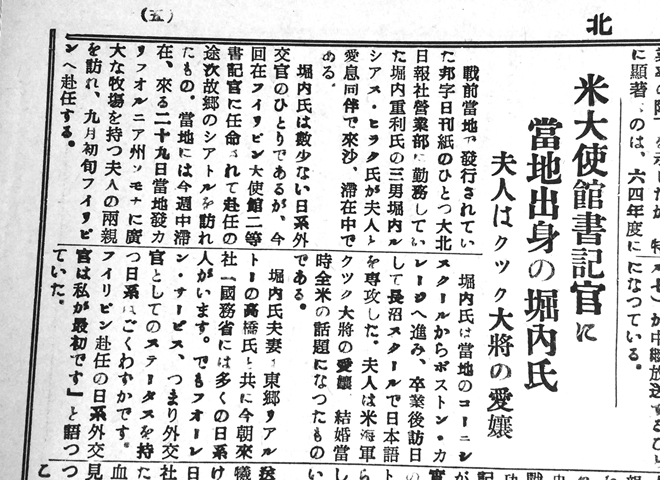 北
(五)
米大使館書記官に
當地出身の堀内氏
夫人はクック大將の愛孃
戰前當地で發行されてい
た邦字日刊紙のひとつ大北
日報社營業部に勤務してい
た堀内重利氏の三男堀内ル
シアス・ヒラク氏が夫人と
愛息同伴で來沙、滯在中で
ある。
堀内氏は數少ない日系外
交官のひとりであるが、今
回在フイリピン大使館二等
書記官に任命されて赴任の
途次故郷のシアトルを訪れ
たもの。當地には今週中滯
在、來る二十九日當地發カ
リフオルニア州ソモナに廣
大な牧場を持つ夫人の兩親
を訪れ、九月初旬フイリピ
ンへ赴任する。
堀内氏は當地のコーニシ
スクールからボストン・カ
レージへ進み、卒業後訪日
して長沼スクールで日本語
を専攻した。夫人は米海軍
クック大將の愛孃 結婚當
時全米の話題になつたもの
である。
堀内氏夫妻は東郷リアル
トーの高橋氏と共に今朝來
社「國務省には多くの日系
人がいます。でもフオーレ
ン・サービス、つまり外交
官としてのステータスを持
つ日系はごくわずかです。
フイリピン赴任の日系外交
官は私が最初です」と語つ
ていた。
に顯著 のは、六四年度に
になつている。